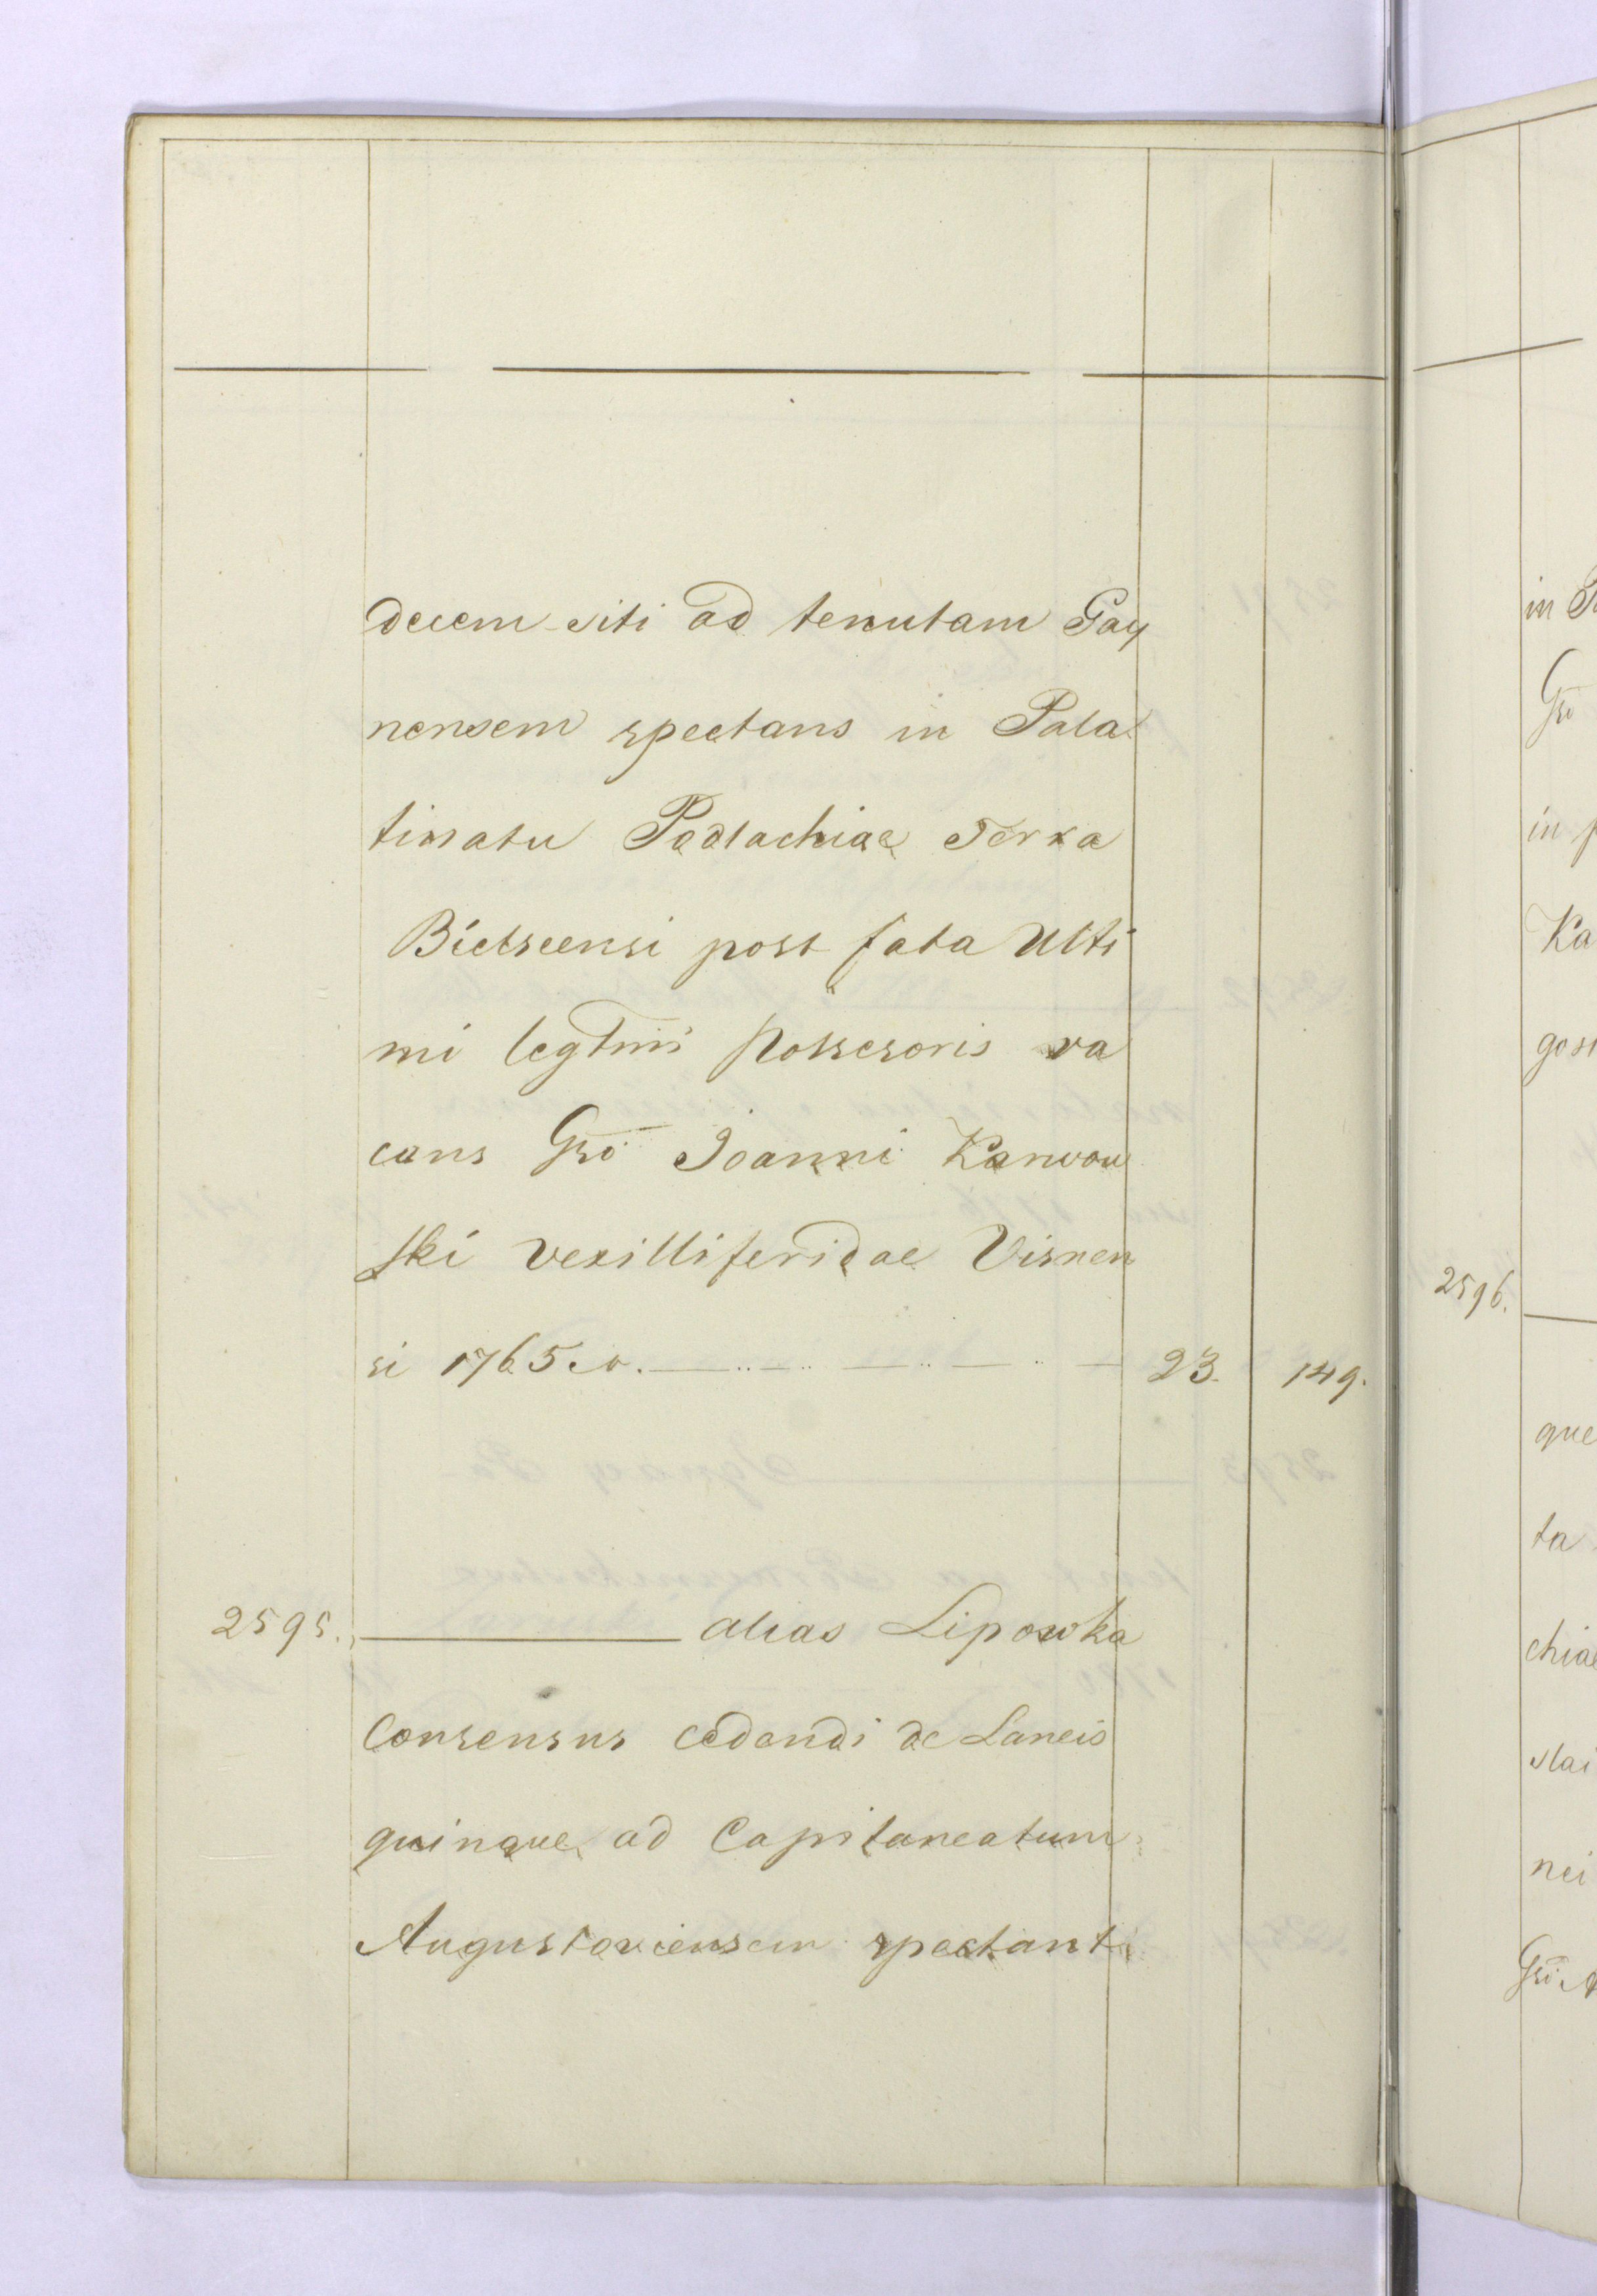 decem siti ad tenutam Gay
nensem spectans in Pala
tinatu Podlachiae Terra
Bielscensi post fata Ulti
mi legtmi Possesoris va
cans Gso Joanni Karwow
ski Vexilliferidae Visnen
si 1765 o. 23. 149.
2595. alias Lipowka
Consensus cedendi de Laneis
quinque ad Capitaneatum
Augustoviensem spectanti
in
Gso
in p
Ka
gost
2596.
que
ta
chiae
slai
nei
Gso